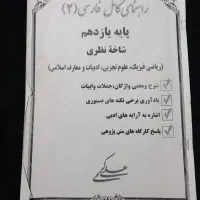 راهنمای کامل فارسی (۲)
پایه یازدهم
شاخهٔ نظری
(ریاضی فیزیک، علوم تجربی، ادبیات و معارف اسلامی)
شرح و معنی واژگان، جملات و ابیات
یادآوری برخی نکته های دستوری
اشاره به آرایه های ادبی
پاسخ کارگاه های متن پژوهی